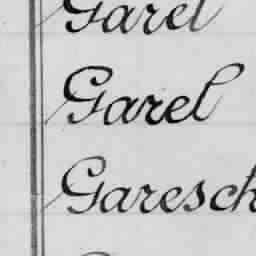 Garel
Garel
Garesch